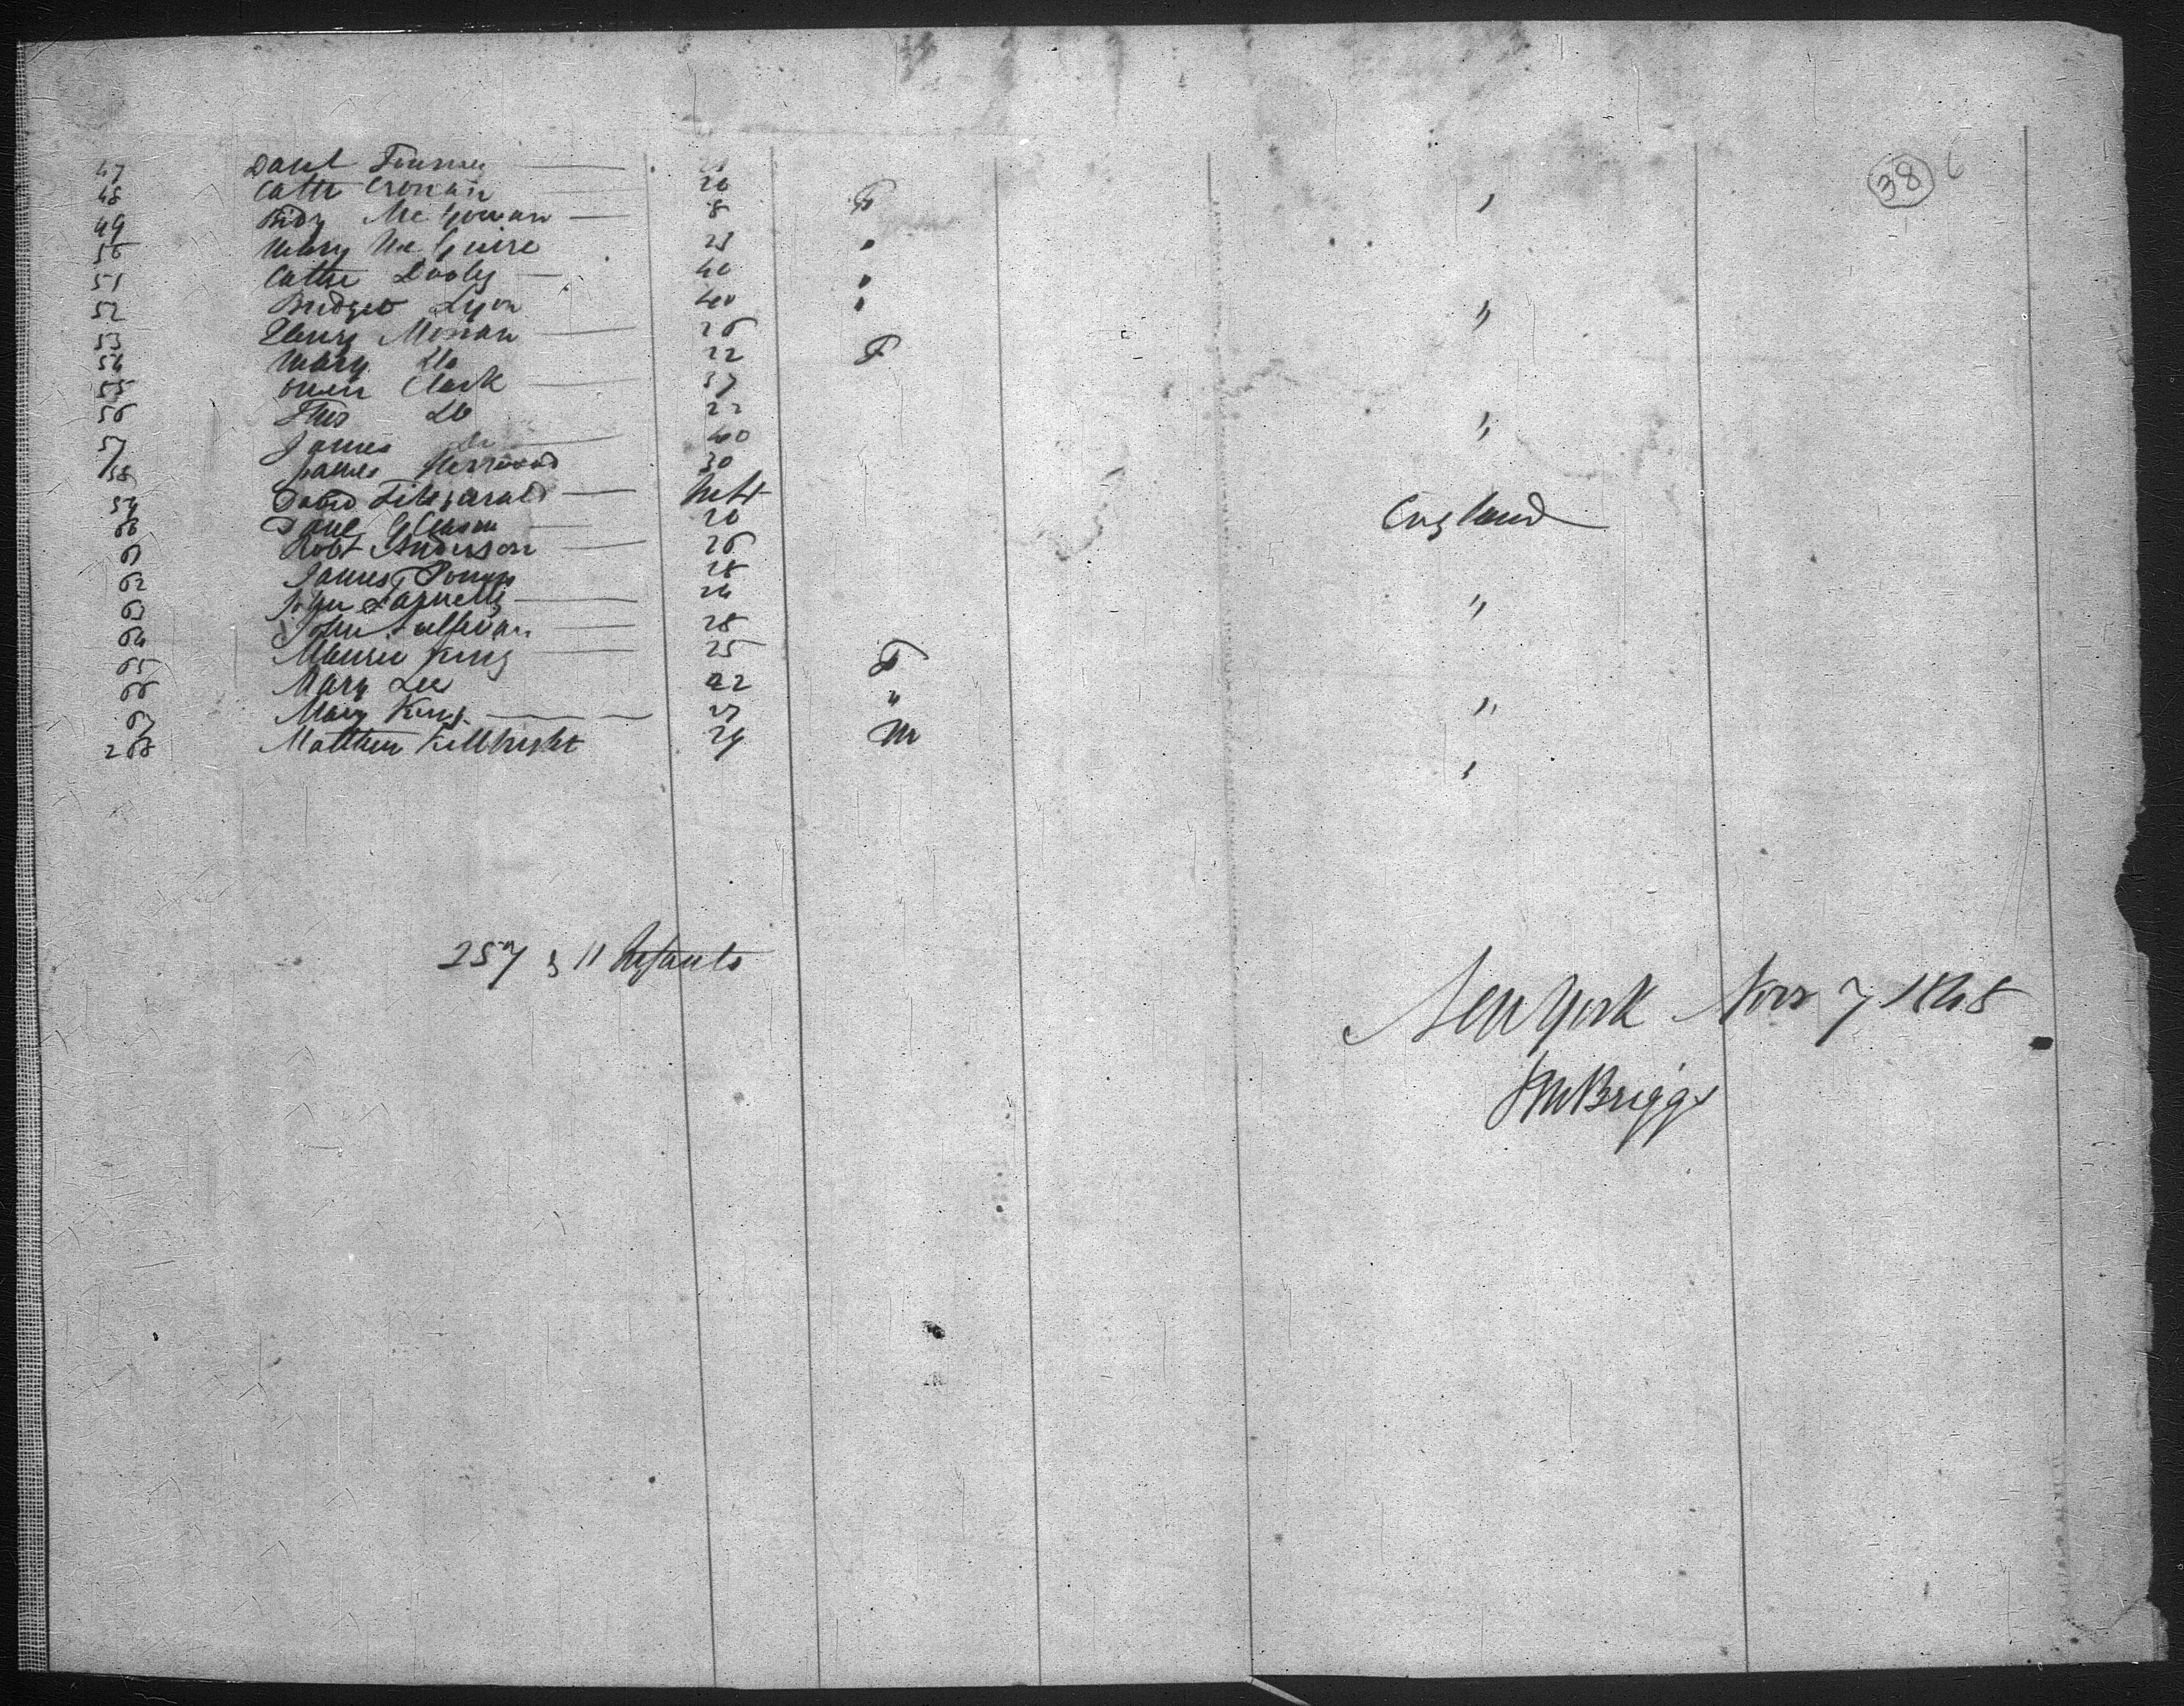 38 6
47 Danl Finney 21
48 Cathe Cronan 20
49 Bidy McGowan 8 F "
50 Mary McGuire 23 "
51 Cathe Dooly 40 "
52 Bridget Lyon 40 " "
53 Henry Moran 26
54 Mary Do 22 F
55 Owen Clark 37
56 Thos Do 22 "
57 James Do 40
58 James 30
59 David Fitzgerald Inft England
60 Danl Gleason 20
61 Robt Anderson 26
62 James 28
63 John 24 "
64 John Sullivan 28
65 Maurice King 25
66 Mary Lee 22 F
67 Mary King 27 " "
268 Matthew Killbright 24 M "
257 & 11 Infants
New York Novr 7 1848
JM Briggs